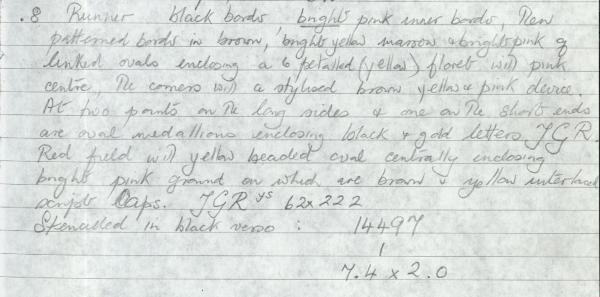 .8 Runner black bords bright pink inner bords, Then
patterned bords in brown, bright yellow marrow & bright pink of
linked ovals enclosing a 6 petalled (yellow) floret with pink
centre, The corners with a stylised brown yellow & pink device.
At two points on The long sides & one on The short ends
are oval medallions enclosing black & gold letters JGR.
Red field with yellow beaded oval centrally enclosing
bright pink ground on which are brown & yellow interlaced
script Caps. JGR ys 62 x 222
Stencilled in black verso : 14497
1
7.4 x 2.0